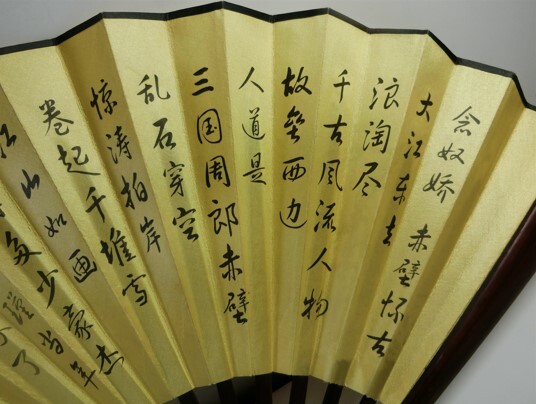 念奴娇 赤壁怀古
大江东去
浪淘尽
千古风流人物
故垒西边
人道是
三国周郎赤壁
乱石穿空
惊涛拍岸
卷起千堆雪
江山如画
多少豪杰
当年
了